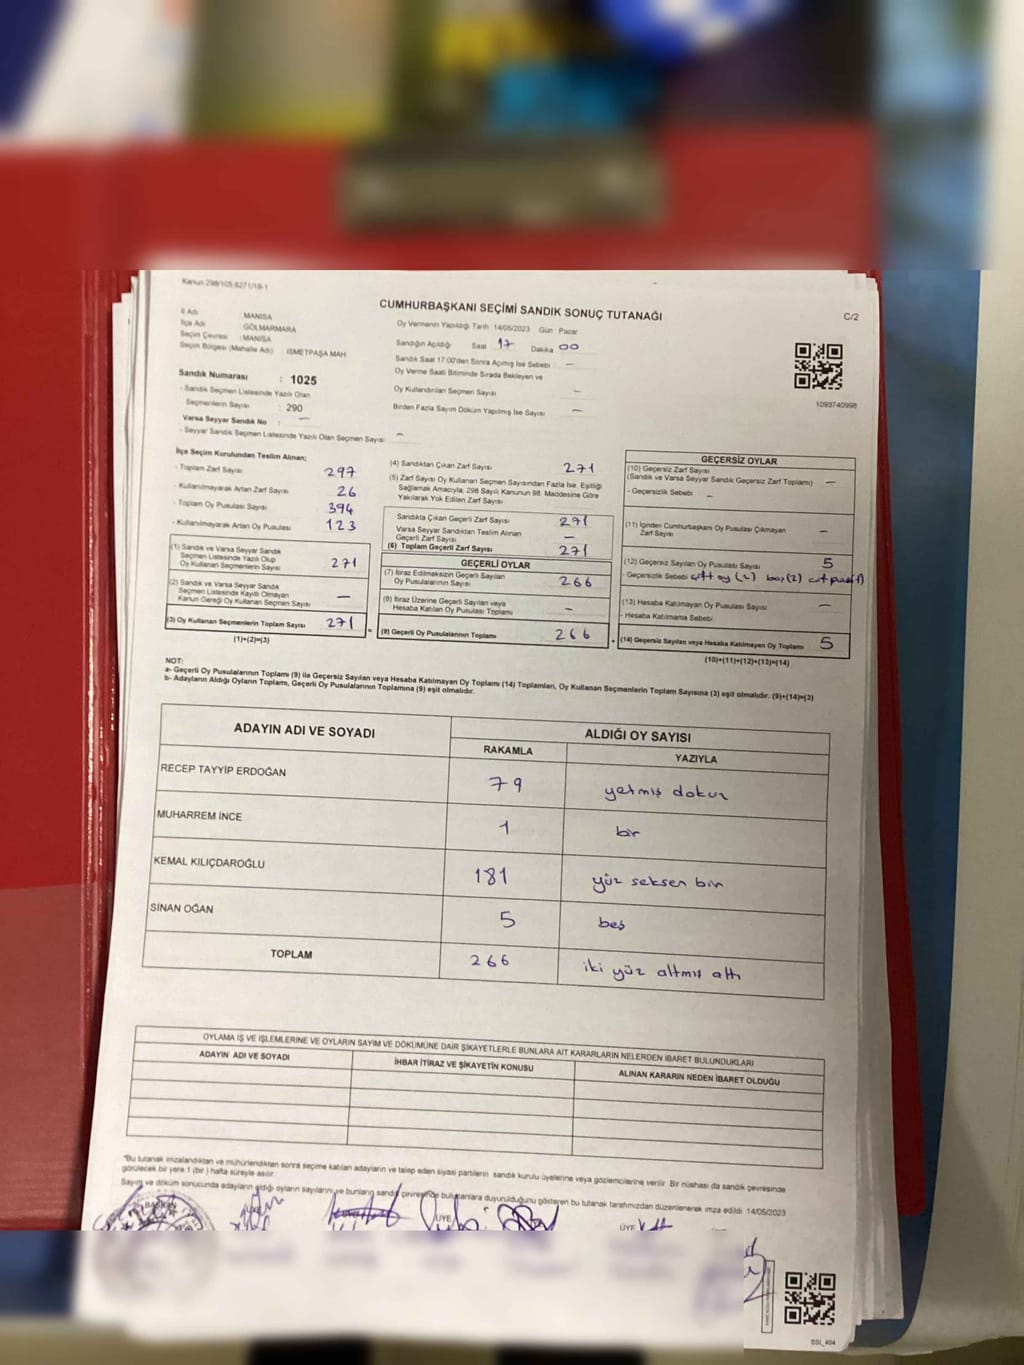 Kanun 298/105,6271/18-1
CUMHURBAŞKANI SEÇİMİ SANDIK SONUÇ TUTANAĞI
C/2
İl Adı : MANİSA
İlçe Adı : GÖLMARMARA
Seçim Çevresi : MANİSA
Seçim Bölgesi (Mahalle Adı) : İSMETPAŞA MAH
Oy Vermenin Yapıldığı Tarih :14/05/2023 Gün : Pazar
Sandığın Açıldığı Saat 17 Dakika 00
Sandık Saat 17:00'den Sonra Açılmış İse Sebebi —
Oy Verme Saati Bitiminde Sırada Bekleyen ve
Oy Kullandırılan Seçmen Sayısı —
Birden Fazla Sayım Döküm Yapılmış İse Sayısı —
1093740998
Sandık Numarası : 1025
- Sandık Seçmen Listesinde Yazılı Olan
Seçmenlerin Sayısı : 290
Varsa Seyyar Sandık No : —
- Seyyar Sandık Seçmen Listesinde Yazılı Olan Seçmen Sayısı —
İlçe Seçim Kurulundan Teslim Alınan;
- Toplam Zarf Sayısı 297
- Kullanılmayarak Artan Zarf Sayısı 26
- Toplam Oy Pusulası Sayısı 394
- Kullanılmayarak Artan Oy Pusulası 123
(1) Sandık ve Varsa Seyyar Sandık
Seçmen Listesinde Yazılı Olup
Oy Kullanan Seçmenlerin Sayısı 271
(2) Sandık ve Varsa Seyyar Sandık
Seçmen Listesinde Kayıtlı Olmayan
Kanun Gereği Oy Kullanan Seçmen Sayısı —
(3) Oy Kullanan Seçmenlerin Toplam Sayısı 271
(1)+(2)=(3)
(4) Sandıktan Çıkan Zarf Sayısı 271
(5) Zarf Sayısı Oy Kullanan Seçmen Sayısından Fazla İse, Eşitliği
Sağlamak Amacıyla, 298 Sayılı Kanunun 98. Maddesine Göre
Yakılarak Yok Edilen Zarf Sayısı —
Sandıkta Çıkan Geçerli Zarf Sayısı 271
Varsa Seyyar Sandıktan Teslim Alınan
Geçerli Zarf Sayısı —
(6) Toplam Geçerli Zarf Sayısı 271
GEÇERLİ OYLAR
(7) İtiraz Edilmeksizin Geçerli Sayılan
Oy Pusulalarının Sayısı 266
(8) İtiraz Üzerine Geçerli Sayılan veya
Hesaba Katılan Oy Pusulası Toplamı —
(9) Geçerli Oy Pusulalarının Toplamı 266
GEÇERSİZ OYLAR
(10) Geçersiz Zarf Sayısı
(Sandık ve Varsa Seyyar Sandık Geçersiz Zarf Toplamı) —
- Geçersizlik Sebebi —
(11) İçinden Cumhurbaşkanı Oy Pusulası Çıkmayan
Zarf Sayısı —
(12) Geçersiz Sayılan Oy Pusulası Sayısı 5
- Geçersizlik Sebebi çift oy (2) boş(2)
(13) Hesaba Katılmayan Oy Pusulası Sayısı —
- Hesaba Katılmama Sebebi
(14) Geçersiz Sayılan veya Hesaba Katılmayan Oy Toplamı 5
(10)+(11)+(12)+(13)=(14)
NOT:
a- Geçerli Oy Pusulalarının Toplamı (9) ile Geçersiz Sayılan veya Hesaba Katılmayan Oy Toplamı (14) Toplamları, Oy Kullanan Seçmenlerin Toplam Sayısına (3) eşit olmalıdır. (9)+(14)=(3)
b- Adayların Aldığı Oyların Toplamı, Geçerli Oy Pusulalarının Toplamına (9) eşit olmalıdır.
ADAYIN ADI VE SOYADI ALDIĞI OY SAYISI
RAKAMLA YAZIYLA
RECEP TAYYİP ERDOĞAN 79 yetmiş dokuz
MUHARREM İNCE 1 bir
KEMAL KILIÇDAROĞLU 181 yüz seksen bir
SİNAN OĞAN 5 beş
TOPLAM 266 iki yüz altmış altı
OYLAMA İŞ VE İŞLEMLERİNE VE OYLARIN SAYIM VE DÖKÜMÜNE DAİR ŞİKAYETLERLE BUNLARA AİT KARARLARIN NELERDEN İBARET BULUNDUKLARI
ADAYIN ADI VE SOYADI İHBAR İTİRAZ VE ŞİKAYETİN KONUSU ALINAN KARARIN NEDEN İBARET OLDUĞU
*Bu tutanak imzalandıktan ve mühürlendikten sonra seçime katılan adayların ve talep eden siyasi partilerin sandık kurulu üyelerine veya gözlemcilerine verilir. Bir nüshası da sandık çevresinde
görülecek bir yere 1 (bir ) hafta süreyle asılır.
Sayım ve döküm sonucunda adayların aldığı oyların sayılarını ve bunların sandık çevresinde bulunanlara duyurulduğunu gösteren bu tutanak tarafımızdan düzenlenerek imza edildi. 14/05/2023
BAŞKAN
ÜYE
ÜYE
SSI_404